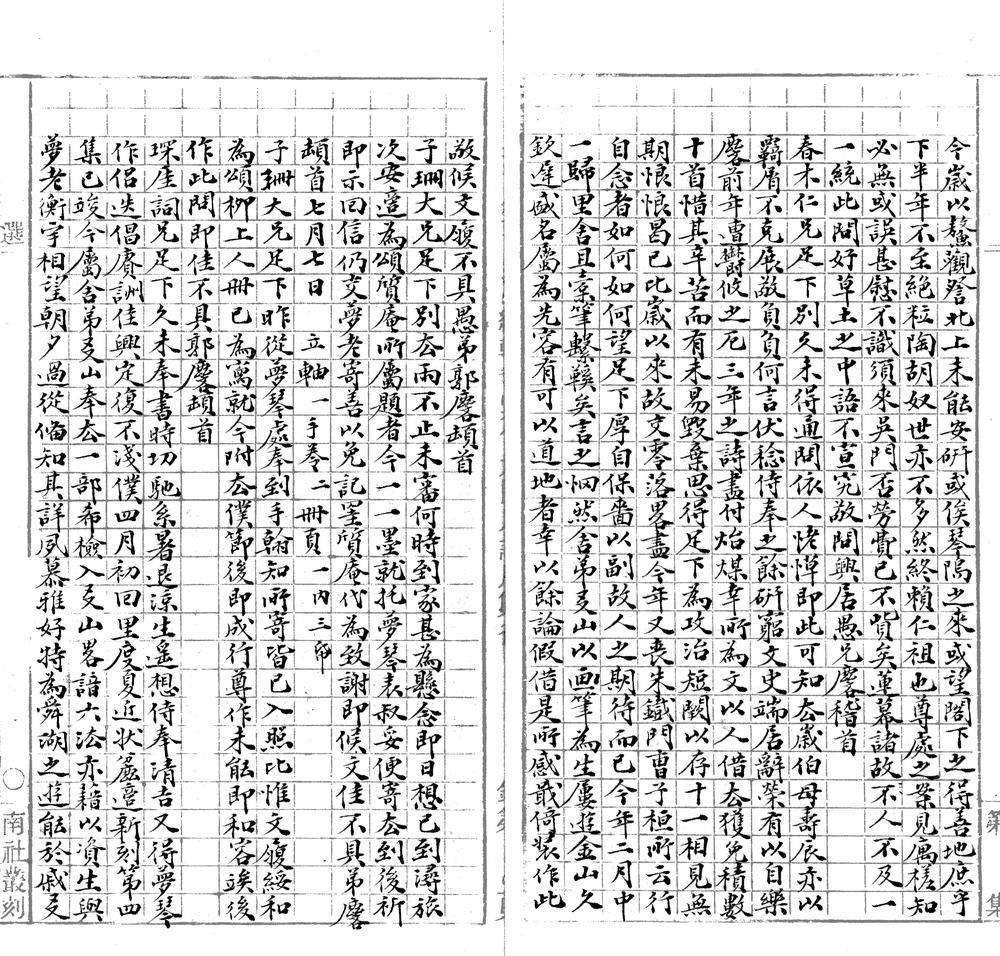 今歲以鼇觀登北上未能安研或俟琴隖之來或望閣下之得善地庶乎
下半年不至絕粒陶胡奴世亦不多然終賴仁祖也尊處之榮見厲槎知
必無或誤甚慰不識須來吳門否勞費已不貲矣蓮幕諸故不人不及一
一統此問好草土之中語不宣究敬問興居愚兄麐稽首
春木仁兄足下別久未得通問依人惓憚即此可知去歲伯母壽辰亦以
羇屑不克展敬負負何言伏稔侍奉之餘研窮文史端居辭榮有以自樂
麐前年遭鬱攸之厄三年之詩盡付炲煤幸所為文以人借去獲免積數
十首惜其辛苦而有未易毀棄思得足下為攻治短闕以存十一相見無
期悵恨曷已比歲以來故交零落畧盡今年又喪朱鐵門曹子桓所云行
自念者如何如何望足下厚自保嗇以副故人之期待而已今年二月中
一歸里舍且橐筆繫鞵矣言之惘然舍弟叐山以画筆為生屢遊金山久
欽遲盛名屬為先容有可以道地者幸以餘論假借是所感戢倚裝作此
敬候文履不具愚弟郭麐頓首
子珊大兄足下別去雨不止未審何時到家甚為懸念即日想已到潯旅
次安遠為頌質庵所屬題者今一一墨就托夢琴表叔妥便寄去到後祈
即示回信仍交夢老寄善以免記罣質庵代為致謝即候文佳不具弟麐
頓首七月七日 立軸一手卷二冊頁一內三佩
子珊大兄足下昨從夢琴處奉到手翰知所寄皆已入照比惟文履綏和
為頌柳上人冊已為寫就今附去僕節後即成行尊作未能即和容竢後
作此問即佳不具郭麐頓首
琛厓詞兄足下久未奉書時切馳系暑退涼生遙想侍奉清吉又得夢琴
作侶迭倡賡詶佳興定復不淺僕四月初回里度夏近狀
集已竣今屬舍弟叐山奉去一部希檢入叐山畧諳六法亦藉以資生與
夢老衡宇相望朝夕過從偹知其詳夙慕雅好特為舜湖之遊能於戚叐
選
○
南社叢刻
第
集